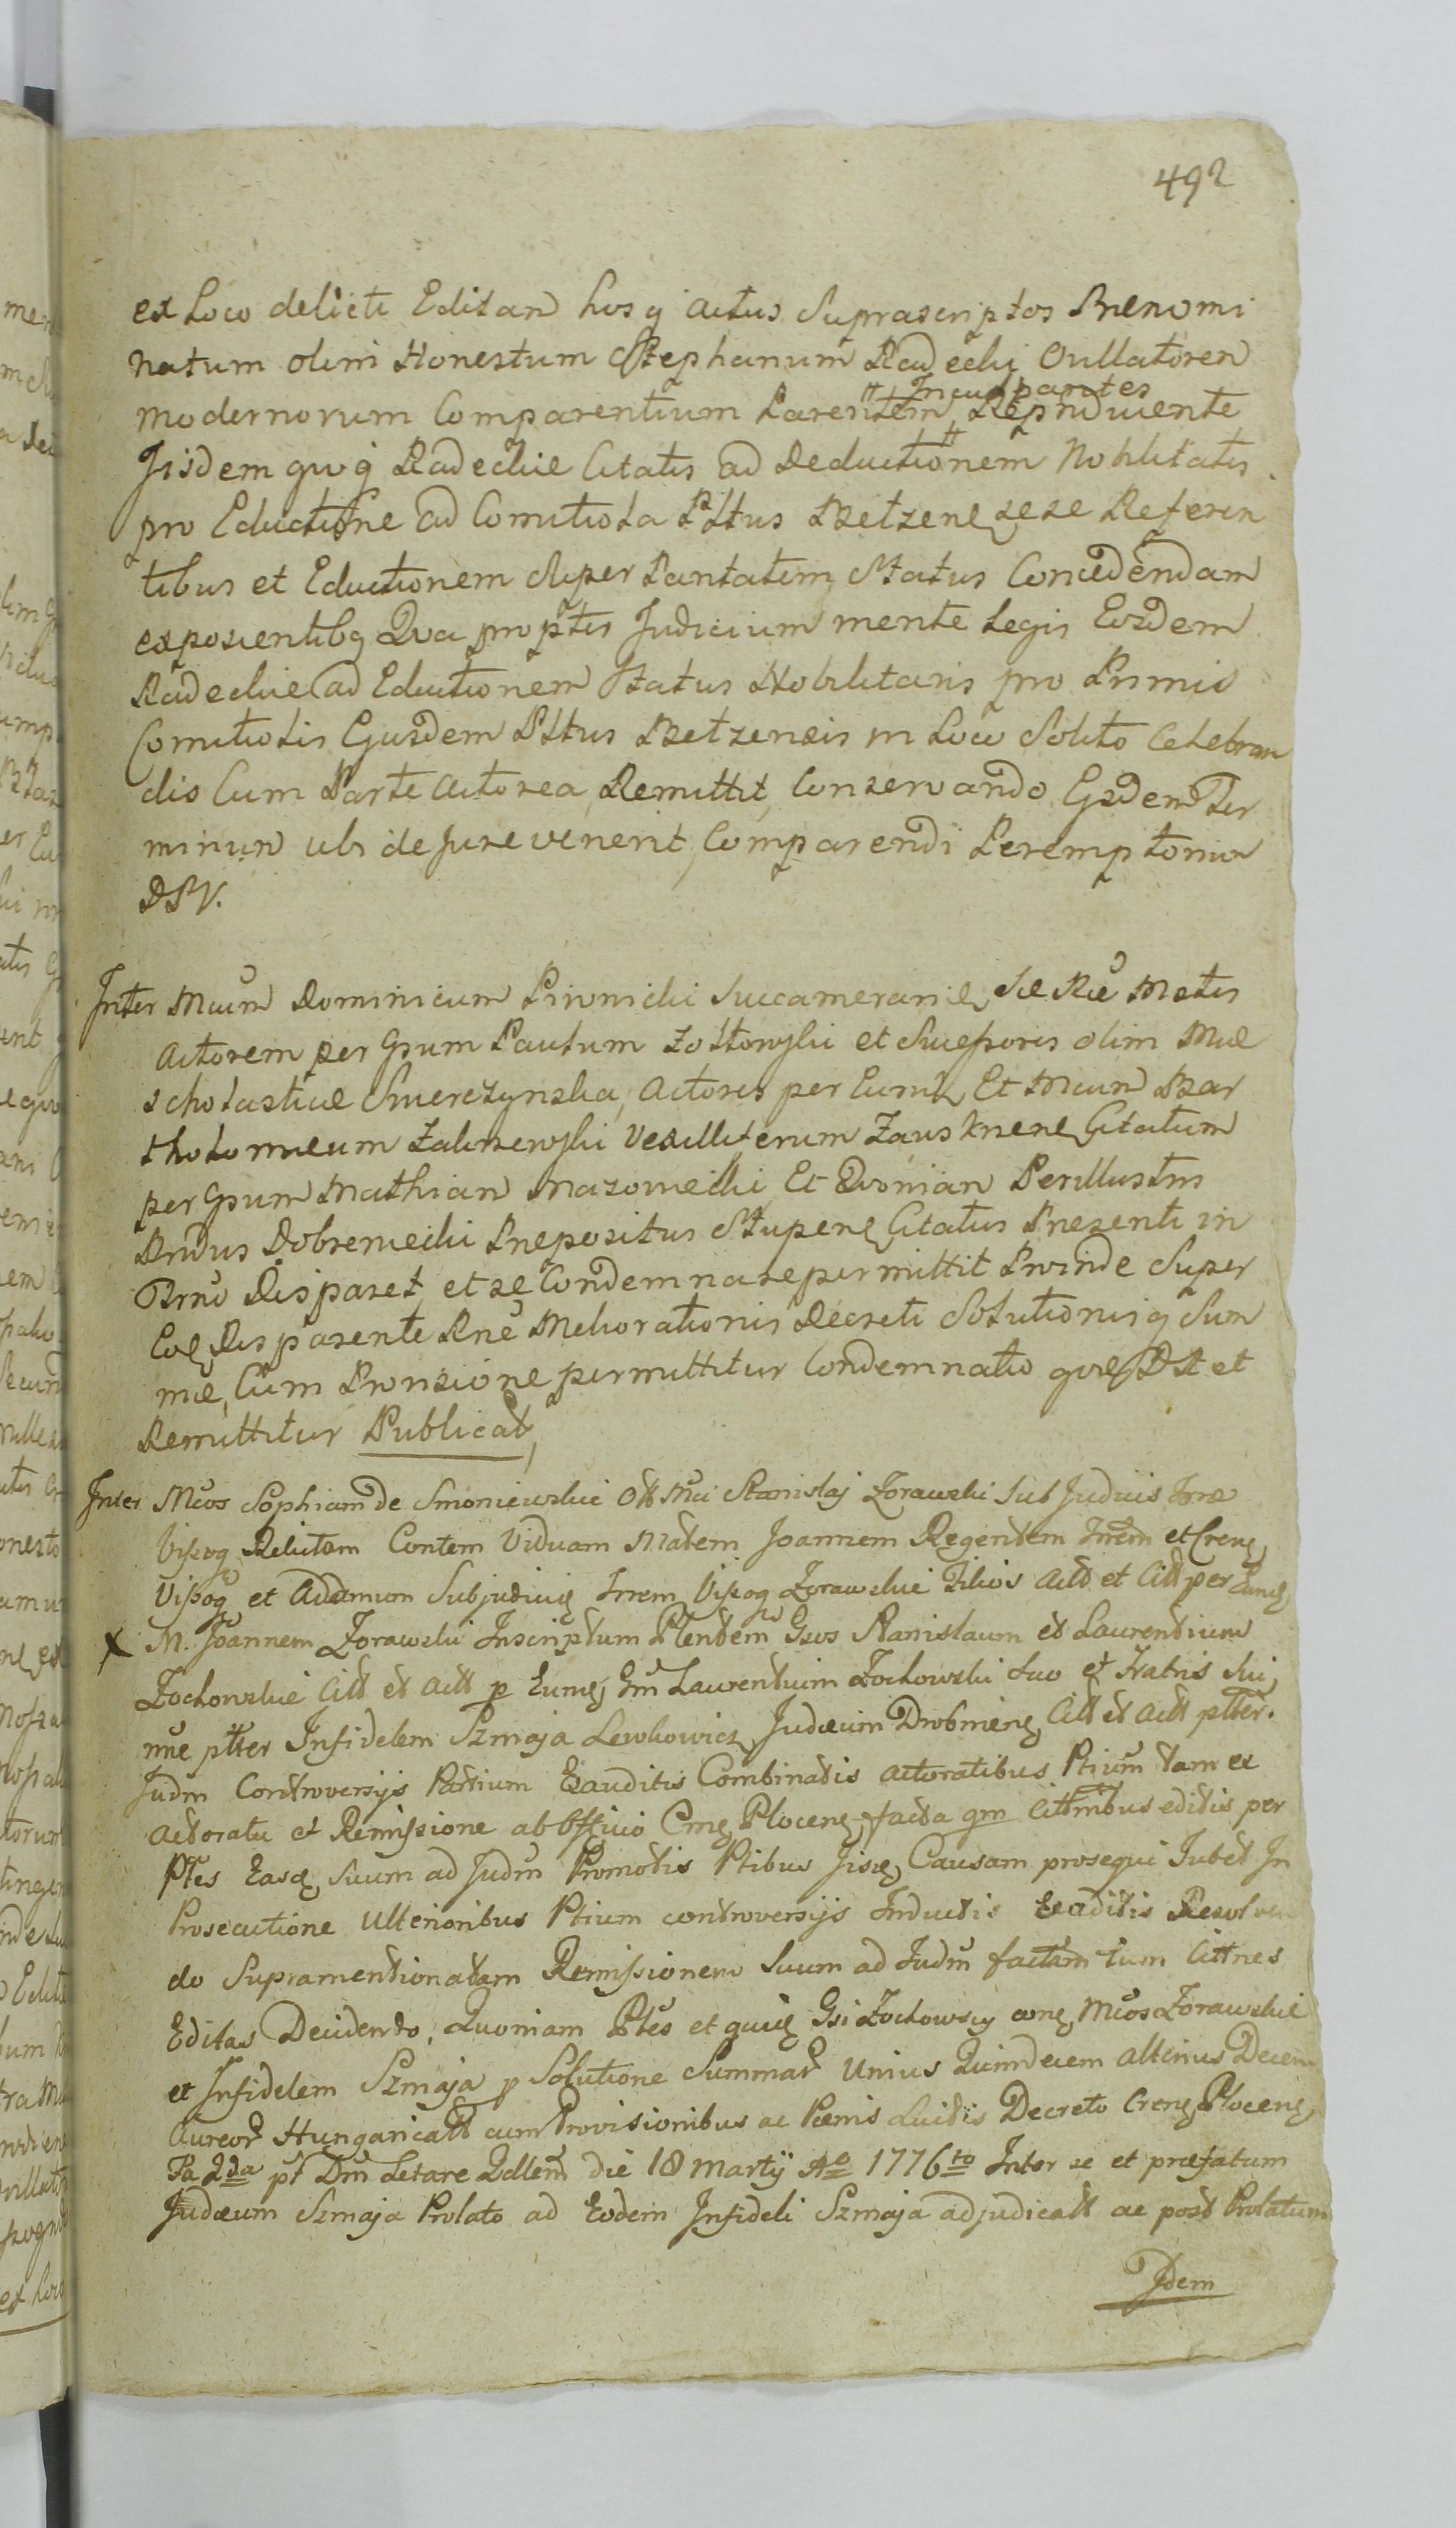 492
ex Loco delicti Editan hosq actus Suprascriptos Prenomi
natum olim Honestum Stephanum Radecki Oullatorem
Incuspantes
modernorum Comparentium Parentem Repndwente
Jisdem quoq Radeckie Citatis ad Deductionem Nobilitatis
pro Eductione ad Comitiola Pltus Betzene sese Referen
tibus et Eductionem Super Paritatem Status Concedendam
exposcentibq Qua proptis Judicium mente Legis Eosdem
Radeckie ad Eductionem Status Nobilitaris pro Primis
Comitiolis Ejusdem Pltus Betzensis in Loco Solito Celebran
dis Cum Parte actorea Remittit, Conservando Esdem Ter
minum ubi de Jure venerit, Comparendi Peremptorium
DPV.
Inter Mcum Dominicum Piwnicki Succamerarie Sie Rie Matis
Actorem per Gsum Paulum Zoltowski et Sucessoris olim Mcæ
Scholasticæ Smerczynska, Actores per Eumd Et Mcum Bar
tholomeum Zakrzewski Vexilliferum Zauskrzene Citatum
per Gsum Mathian Mazowiecki Et Qvoniam Perillustris
Rndus Dobrzeniecki Prepositus Stupene Citatus Presenti in
Trno Disparet et se Condemnare permittit Proinde Super
Eoe Disparente Rne Meliorationis Decreti Solutionisq Sum
mæ, Cum Provisione permittitur Condemnatio que DSt et
Remittitur Publicat,
Inter Mcos Sophiam de Smoniewskie Olt Mci Stanislaj Zorawski Sub Judicis Træ
Vissog Relictam Contem Viduam Matem Joannem Regentem Trrem et Crene
Vissog et Adamum Subjudicie Trrem Vissog Zorawskie Filios Actt et Citt per Eund
X M. Joannem Zorawski Inscriptum Plentem Gsos Stanislaum et Laurentium
Zochowskie Citt et Actt p Eume Gm Laurentium Zochowski Suo et Fratris Sui
nne ptter Infidelem Szmaja Lewkowicz Judæum Drobniene Citt et Actt ptter.
Judm Controversijs Partium Exauditis Combinatis actoratibus Ptium tam ex
Actoratu et Remissione ab Officio Cme Plocene facta qm Cittnibus editis per
Ptes Easd Suum ad Judm Promotis Ptibus Jisd Causam prosequi Jubet In
Prosecutione Ulterioribus Ptium controversijs Inductis Exaditis Resolven
do Supramentionatam Remissionem Suum ad Judm factam tum Cittnes
Editas Decidendo, Quoniam Ptes et quid Gsi Zochowscy cone Mcos Zorawskie
et Infidelem Szmaja p Solutione Summar Unius Quindecem alterius Decem
Aureor Hungaricatt cum Provisionibus ac Pænis Luitis Decreto Crene Plocene
Fa 2da pt Dm Letare Qdllem die 18 Martij Ao 1776to Inter se et præfatum
Judæum Szmaja Prolato ad Eodem Infideli Szmaja adjudicatt ac post Prolatum
Jdem